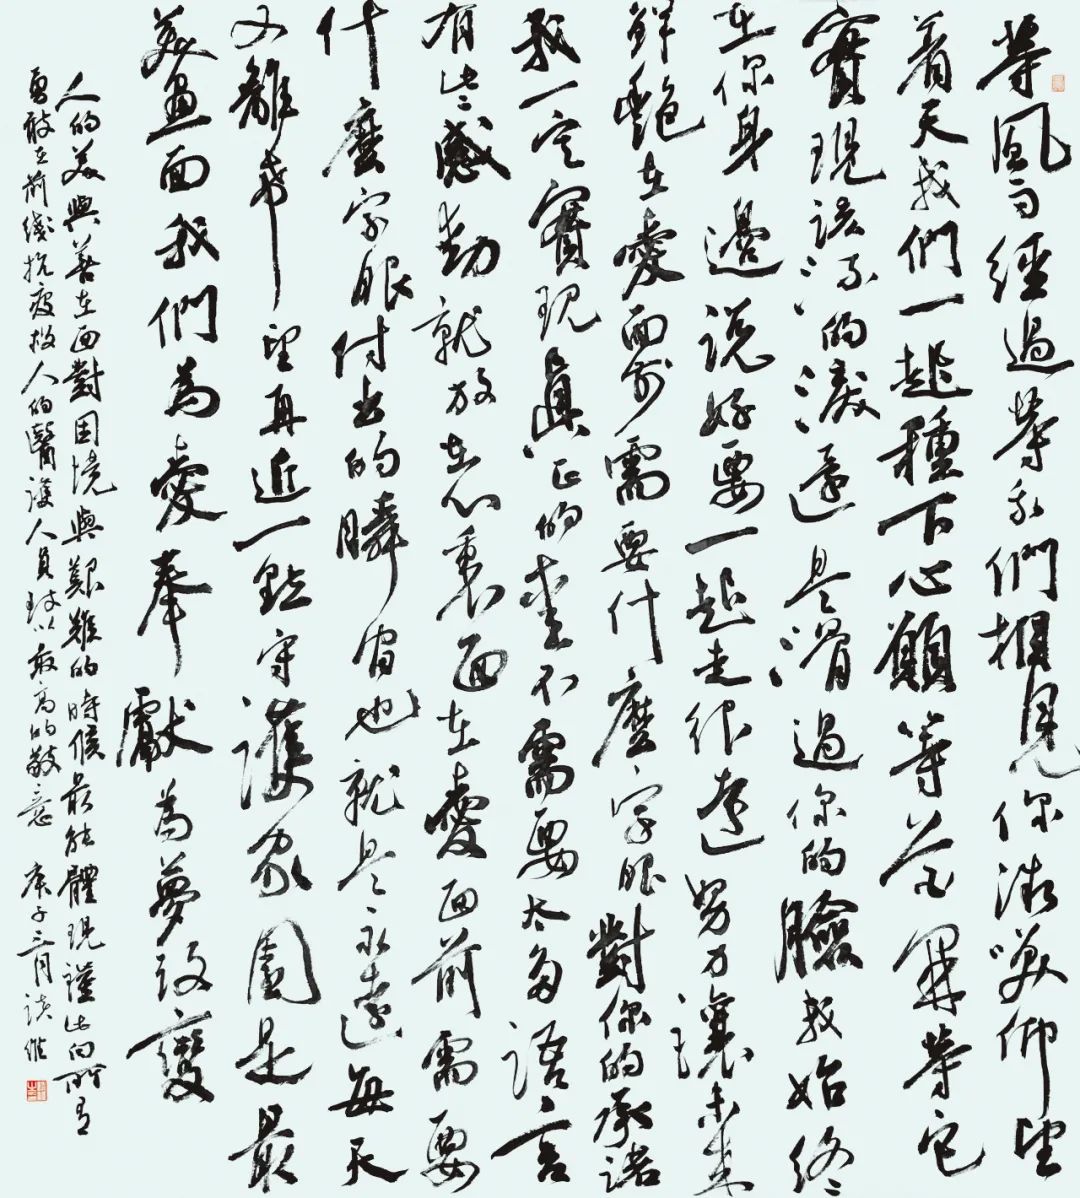 等風雨經過等我們相見你微笑仰望
着天我們一起種下心願等花開等它
實現該流的淚還是滑過你的臉我始終
在你身邊說好要一起走很遠努力讓未來
鮮艷在愛面前需要什麼字眼對你的承諾
我一定實現真正的愛不需要太多語言
有些感動就放在心裏面在愛面前需要
什麼字眼付出的瞬間也就是永遠每天
又離希望再近一點守護家園是最
美畫面我們為愛奉獻為夢改變
人的美與善在面對困境與艱難的時候最能體現謹此向所有
勇敢在前綫抗疫救人的醫護人員致以最高的敬意 庚子三月